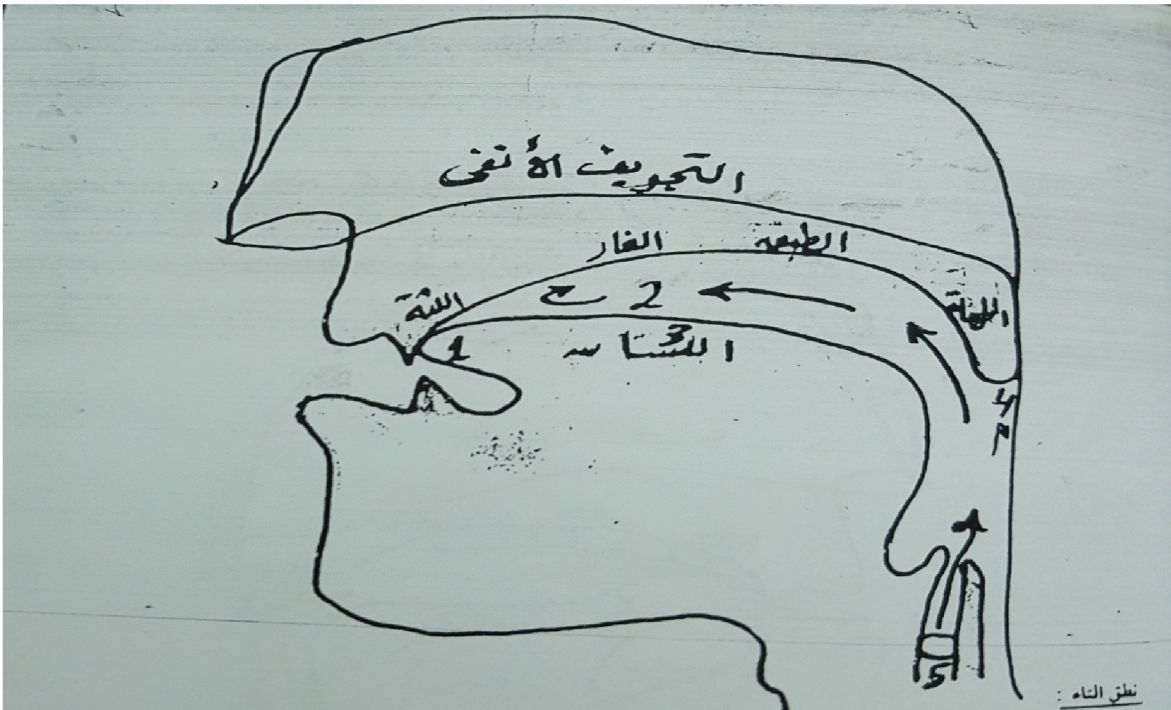 التجويف الأنفى
الطبق
الغار
اللهاة
اللثة
2
1
3
اللسان
4
5
نطق التاء :